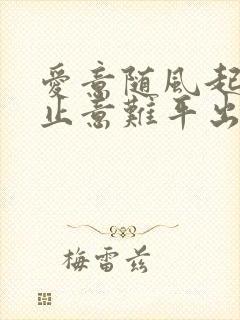 愛意随風起
止意難平出
梅雷兹